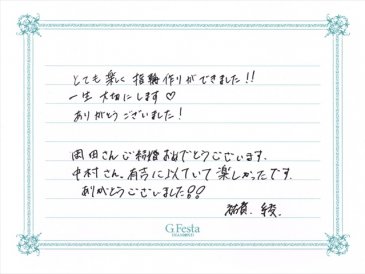 とても楽しく指輪作りができました!!
一生大切にします♡
ありがとうございました!
岡田さんご結婚おめでとうございます.
中村さん。有吉に似ていて楽しかったです.
ありがとうございました!!
綾.
G.Festa